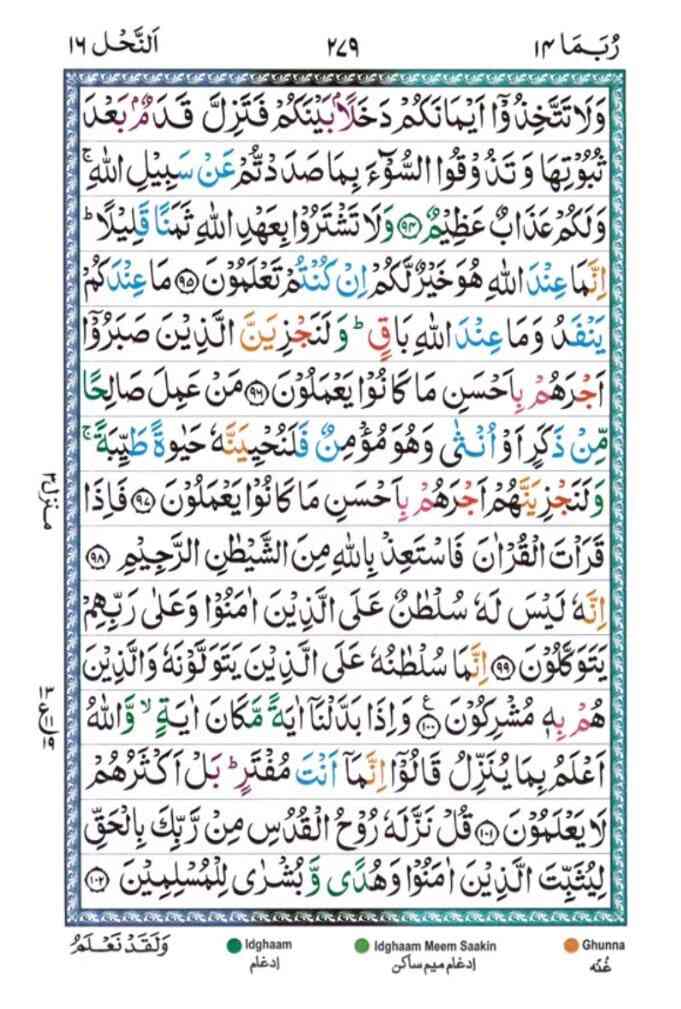 رُبَمَا ۱۴
۲۷۹
اَلنَّحْل ۱۶
وَلَا تَتَّخِذُوْٓا اَيْمَانَكُمْ دَخَلًۢا بَيْنَكُمْ فَتَزِلَّ قَدَمٌۢ بَعْدَ
ثُبُوْتِهَا وَتَذُوْقُوا السُّوْٓءَ بِمَا صَدَدْتُّمْ عَنْ سَبِيْلِ اللّٰهِ ۚ
وَلَكُمْ عَذَابٌ عَظِيْمٌ ﴿۹۴﴾ وَلَا تَشْتَرُوْا بِعَهْدِ اللّٰهِ ثَمَنًا قَلِيْلًا ؕ
اِنَّمَا عِنْدَ اللّٰهِ هُوَ خَيْرٌ لَّكُمْ اِنْ كُنْتُمْ تَعْلَمُوْنَ ﴿۹۵﴾ مَا عِنْدَكُمْ
يَنْفَدُ وَمَا عِنْدَ اللّٰهِ بَاقٍ ؕ وَلَنَجْزِيَنَّ الَّذِيْنَ صَبَرُوْٓا
اَجْرَهُمْ بِاَحْسَنِ مَا كَانُوْا يَعْمَلُوْنَ ﴿۹۶﴾ مَنْ عَمِلَ صَالِحًا
مِّنْ ذَكَرٍ اَوْ اُنْثٰى وَهُوَ مُؤْمِنٌ فَلَنُحْيِيَنَّهٗ حَيٰوةً طَيِّبَةً ۚ
وَلَنَجْزِيَنَّهُمْ اَجْرَهُمْ بِاَحْسَنِ مَا كَانُوْا يَعْمَلُوْنَ ﴿۹۷﴾ فَاِذَا
قَرَاْتَ الْقُرْاٰنَ فَاسْتَعِذْ بِاللّٰهِ مِنَ الشَّيْطٰنِ الرَّجِيْمِ ﴿۹۸﴾
اِنَّهٗ لَيْسَ لَهٗ سُلْطٰنٌ عَلَى الَّذِيْنَ اٰمَنُوْا وَعَلٰى رَبِّهِمْ
يَتَوَكَّلُوْنَ ﴿۹۹﴾ اِنَّمَا سُلْطٰنُهٗ عَلَى الَّذِيْنَ يَتَوَلَّوْنَهٗ وَالَّذِيْنَ
هُمْ بِهٖ مُشْرِكُوْنَ ﴿۱۰۰﴾ ع وَاِذَا بَدَّلْنَاۤ اٰيَةً مَّكَانَ اٰيَةٍ ۙ وَّاللّٰهُ
اَعْلَمُ بِمَا يُنَزِّلُ قَالُوْٓا اِنَّمَاۤ اَنْتَ مُفْتَرٍ ؕ بَلْ اَكْثَرُهُمْ
لَا يَعْلَمُوْنَ ﴿۱۰۱﴾ قُلْ نَزَّلَهٗ رُوْحُ الْقُدُسِ مِنْ رَّبِّكَ بِالْحَقِّ
لِيُثَبِّتَ الَّذِيْنَ اٰمَنُوْا وَهُدًى وَّبُشْرٰى لِلْمُسْلِمِيْنَ ﴿۱۰۲﴾
منزل ۳
۱۳
ع ۱۱
۱۹
وَلَقَدْ نَعْلَمُ
Idghaam
ادغام
Idghaam Meem Saakin
ادغام میم ساکن
Ghunna
غُنّه